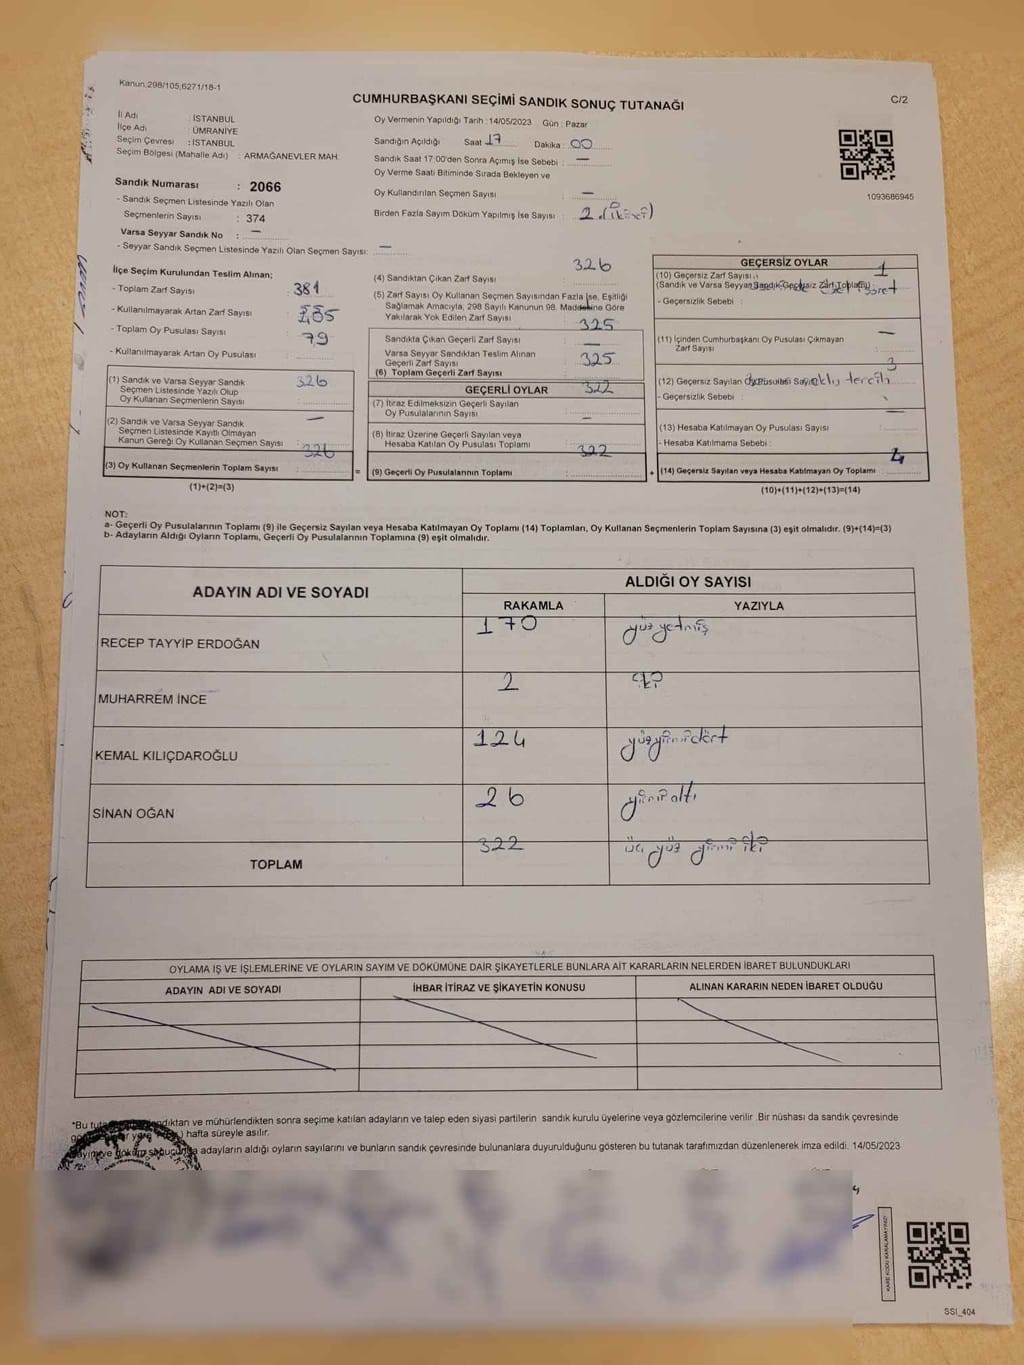 Kanun,298/105,6271/18-1
C/2
CUMHURBAŞKANI SEÇİMİ SANDIK SONUÇ TUTANAĞI
İl Adı : İSTANBUL
İlçe Adı : ÜMRANİYE
Seçim Çevresi : İSTANBUL
Seçim Bölgesi (Mahalle Adı) : ARMAĞANEVLER MAH.
Sandık Numarası : 2066
- Sandık Seçmen Listesinde Yazılı Olan
Seçmenlerin Sayısı : 374
Varsa Seyyar Sandık No : —
- Seyyar Sandık Seçmen Listesinde Yazılı Olan Seçmen Sayısı: —
Oy Vermenin Yapıldığı Tarih : 14/05/2023 Gün : Pazar
Sandığın Açıldığı Saat 17 Dakika : 00
Sandık Saat 17:00'den Sonra Açımış İse Sebebi : —
Oy Verme Saati Bitiminde Sırada Bekleyen ve
Oy Kullandırılan Seçmen Sayısı : —
Birden Fazla Sayım Döküm Yapılmış İse Sayısı : 2 (iki)
1093686945
İlçe Seçim Kurulundan Teslim Alınan;
- Toplam Zarf Sayısı : 381
- Kullanılmayarak Artan Zarf Sayısı :
- Toplam Oy Pusulası Sayısı : 79
- Kullanılmayarak Artan Oy Pusulası :
(1) Sandık ve Varsa Seyyar Sandık 326
Seçmen Listesinde Yazılı Olup
Oy Kullanan Seçmenlerin Sayısı :
(2) Sandık ve Varsa Seyyar Sandık —
Seçmen Listesinde Kayıtlı Olmayan
Kanun Gereği Oy Kullanan Seçmen Sayısı :
326
(3) Oy Kullanan Seçmenlerin Toplam Sayısı :
(1)+(2)=(3)
326
(4) Sandıktan Çıkan Zarf Sayısı :
(5) Zarf Sayısı Oy Kullanan Seçmen Sayısından Fazla İse, Eşitliği
Sağlamak Amacıyla, 298 Sayılı Kanunun 98. Maddesine Göre
Yakılarak Yok Edilen Zarf Sayısı :
325
Sandıkta Çıkan Geçerli Zarf Sayısı : —
Varsa Seyyar Sandıktan Teslim Alınan 325
Geçerli Zarf Sayısı :
(6) Toplam Geçerli Zarf Sayısı :
GEÇERLİ OYLAR 322
(7) İtiraz Edilmeksizin Geçerli Sayılan
Oy Pusulalarının Sayısı :
—
(8) İtiraz Üzerine Geçerli Sayılan veya
Hesaba Katılan Oy Pusulası Toplamı :
322
= (9) Geçerli Oy Pusulalarının Toplamı :
GEÇERSİZ OYLAR
(10) Geçersiz Zarf Sayısı : 1
(Sandık ve Varsa Seyyar Sandık Geçersiz Zarf Toplamı)
- Geçersizlik Sebebi :
—
(11) İçinden Cumhurbaşkanı Oy Pusulası Çıkmayan
Zarf Sayısı :
3
(12) Geçersiz Sayılan Oy Pusulası Sayısı
- Geçersizlik Sebebi :
—
(13) Hesaba Katılmayan Oy Pusulası Sayısı :
- Hesaba Katılmama Sebebi :
4
+ (14) Geçersiz Sayılan veya Hesaba Katılmayan Oy Toplamı :
(10)+(11)+(12)+(13)=(14)
NOT:
a- Geçerli Oy Pusulalarının Toplamı (9) ile Geçersiz Sayılan veya Hesaba Katılmayan Oy Toplamı (14) Toplamları, Oy Kullanan Seçmenlerin Toplam Sayısına (3) eşit olmalıdır. (9)+(14)=(3)
b- Adayların Aldığı Oyların Toplamı, Geçerli Oy Pusulalarının Toplamına (9) eşit olmalıdır.
ADAYIN ADI VE SOYADI
ALDIĞI OY SAYISI
RAKAMLA YAZIYLA
RECEP TAYYİP ERDOĞAN 170 yüzyetmiş
MUHARREM İNCE 2 iki
KEMAL KILIÇDAROĞLU 124 yüzyirmidört
SİNAN OĞAN 26 yirmialtı
TOPLAM 322 üç yüz yirmi iki
OYLAMA İŞ VE İŞLEMLERİNE VE OYLARIN SAYIM VE DÖKÜMÜNE DAİR ŞİKAYETLERLE BUNLARA AİT KARARLARIN NELERDEN İBARET BULUNDUKLARI
ADAYIN ADI VE SOYADI İHBAR İTİRAZ VE ŞİKAYETİN KONUSU ALINAN KARARIN NEDEN İBARET OLDUĞU
*Bu ve mühürlendikten sonra seçime katılan adayların ve talep eden siyasi partilerin sandık kurulu üyelerine veya gözlemcilerine verilir .Bir nüshası da sandık çevresinde
hafta süreyle asılır.
adayların aldığı oyların sayılarını ve bunların sandık çevresinde bulunanlara duyurulduğunu gösteren bu tutanak tarafımızdan düzenlenerek imza edildi. 14/05/2023
KARE KODU KARALAMAYINIZ!
SSI_404